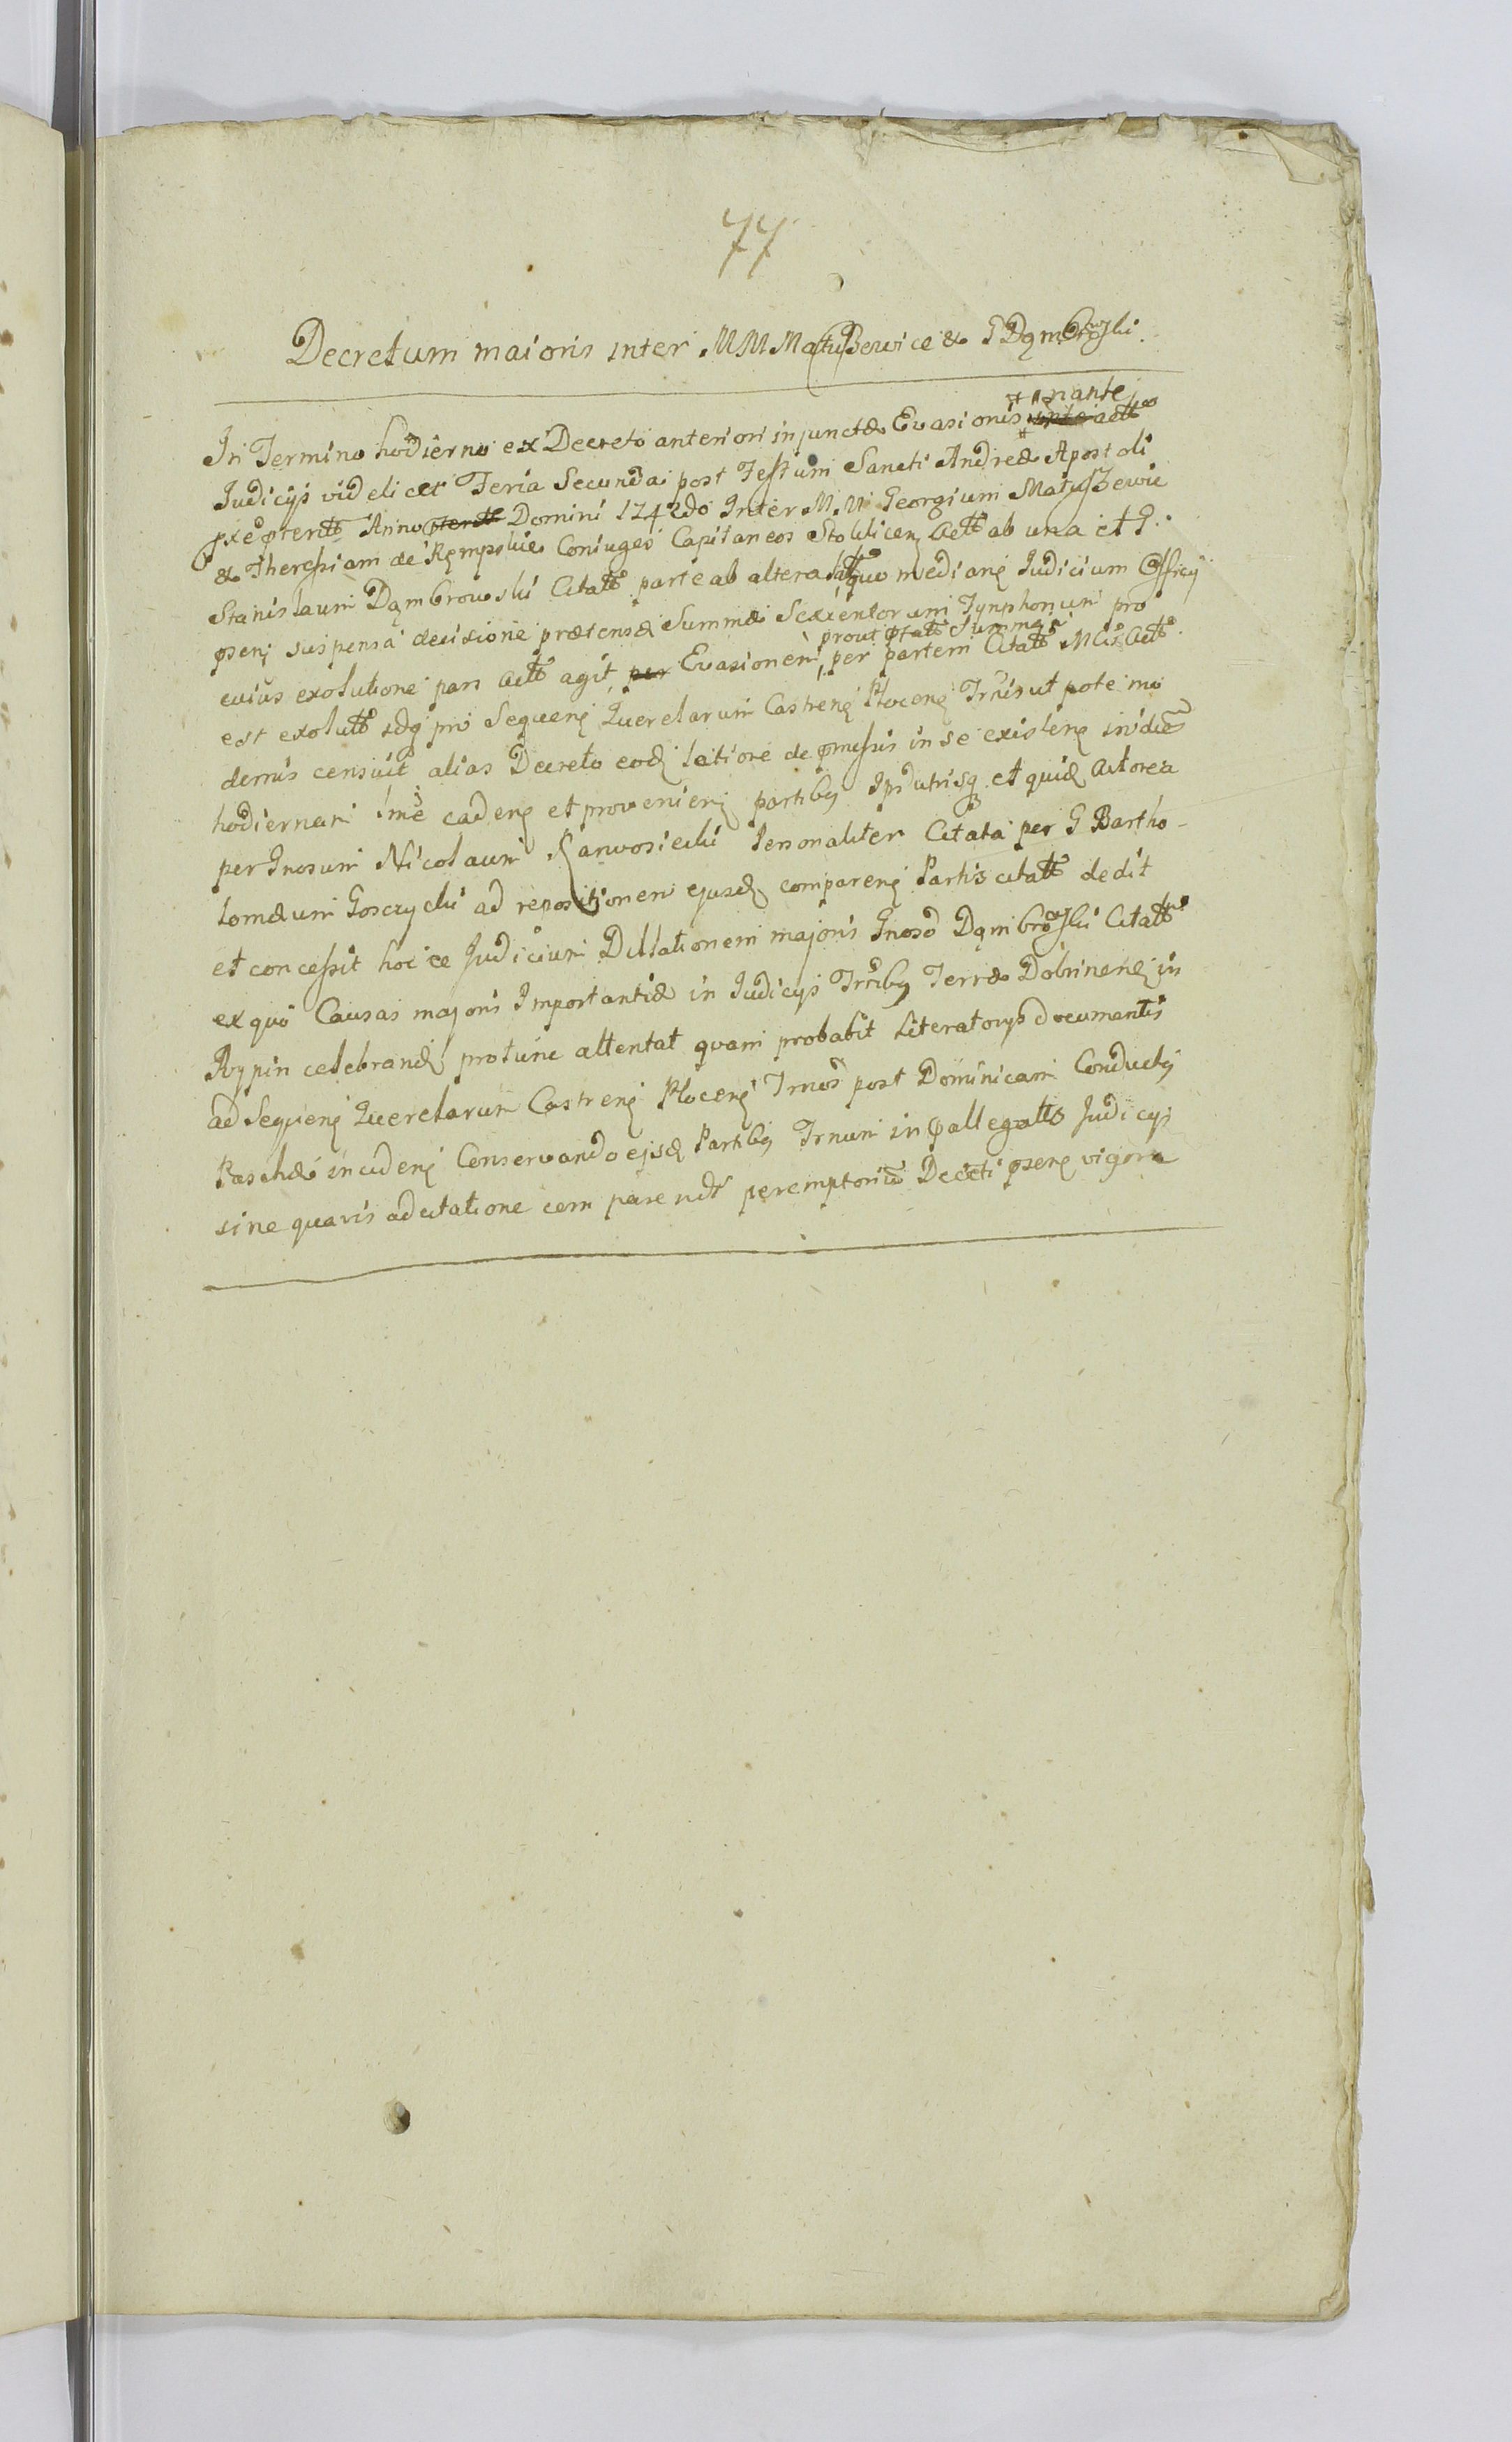 77
Decretum maioris inter MM Matuszewice & G Dąmbrowski
In Termino hodierno ex Decreto anteriori injunctæ Evasionis
Judicijs videlicet Feria Secunda post Festum Sancti Andreæ Apostoli
Anno Domini 1742do Inter M.M Georgium Matuszewic
& Theressiam de Rempskie Coniuges Capitaneos Stoklicen Actt ab una et G.
Stanislaum Dąmbrowski Citatt parte ab altera quo median Judicium Officij
psenj suspensa decisione prætensæ Summæ Sexcentorum Tynphonum pro
prout Summa
cuius exolutione pars Actt agit, per Evasionem, per partem Citatt Actt
est exolutt sdq pro Sequenj Querelarum Castrenj Plocenj Trnis ut pote
demis censuit alias Decreto eod latiore de pmissis in se existenj in
hodiernam cadenj et provenienj partibq utrisq et quid Actorea
per Gnosum Nicolaum Karwosiecki Personaliter Citata per G Bartho-
lomæum Goszczycki ad repositionem ejusd comparenj Partis citatt dedit
et concessit hocce Judicium Dillationem majoris Gnoso Dąmbrowski Citatt
ex quo Causas majoris Importantiæ in Judicijs Trrlibq Terræ Dobrinenj in
Rypin celebrand protunc attentat quam probabit Literatorijs documentis
ad Sequenj Querelarum Castrenj Plocenj Trnos post Dominicam Conductq
Paschæ incidenj Conservando ejsd Partibq Trnum in pallegatts Judicijs
sine quavis adcitatione com parendi peremptoriu Decreti psenj vigore